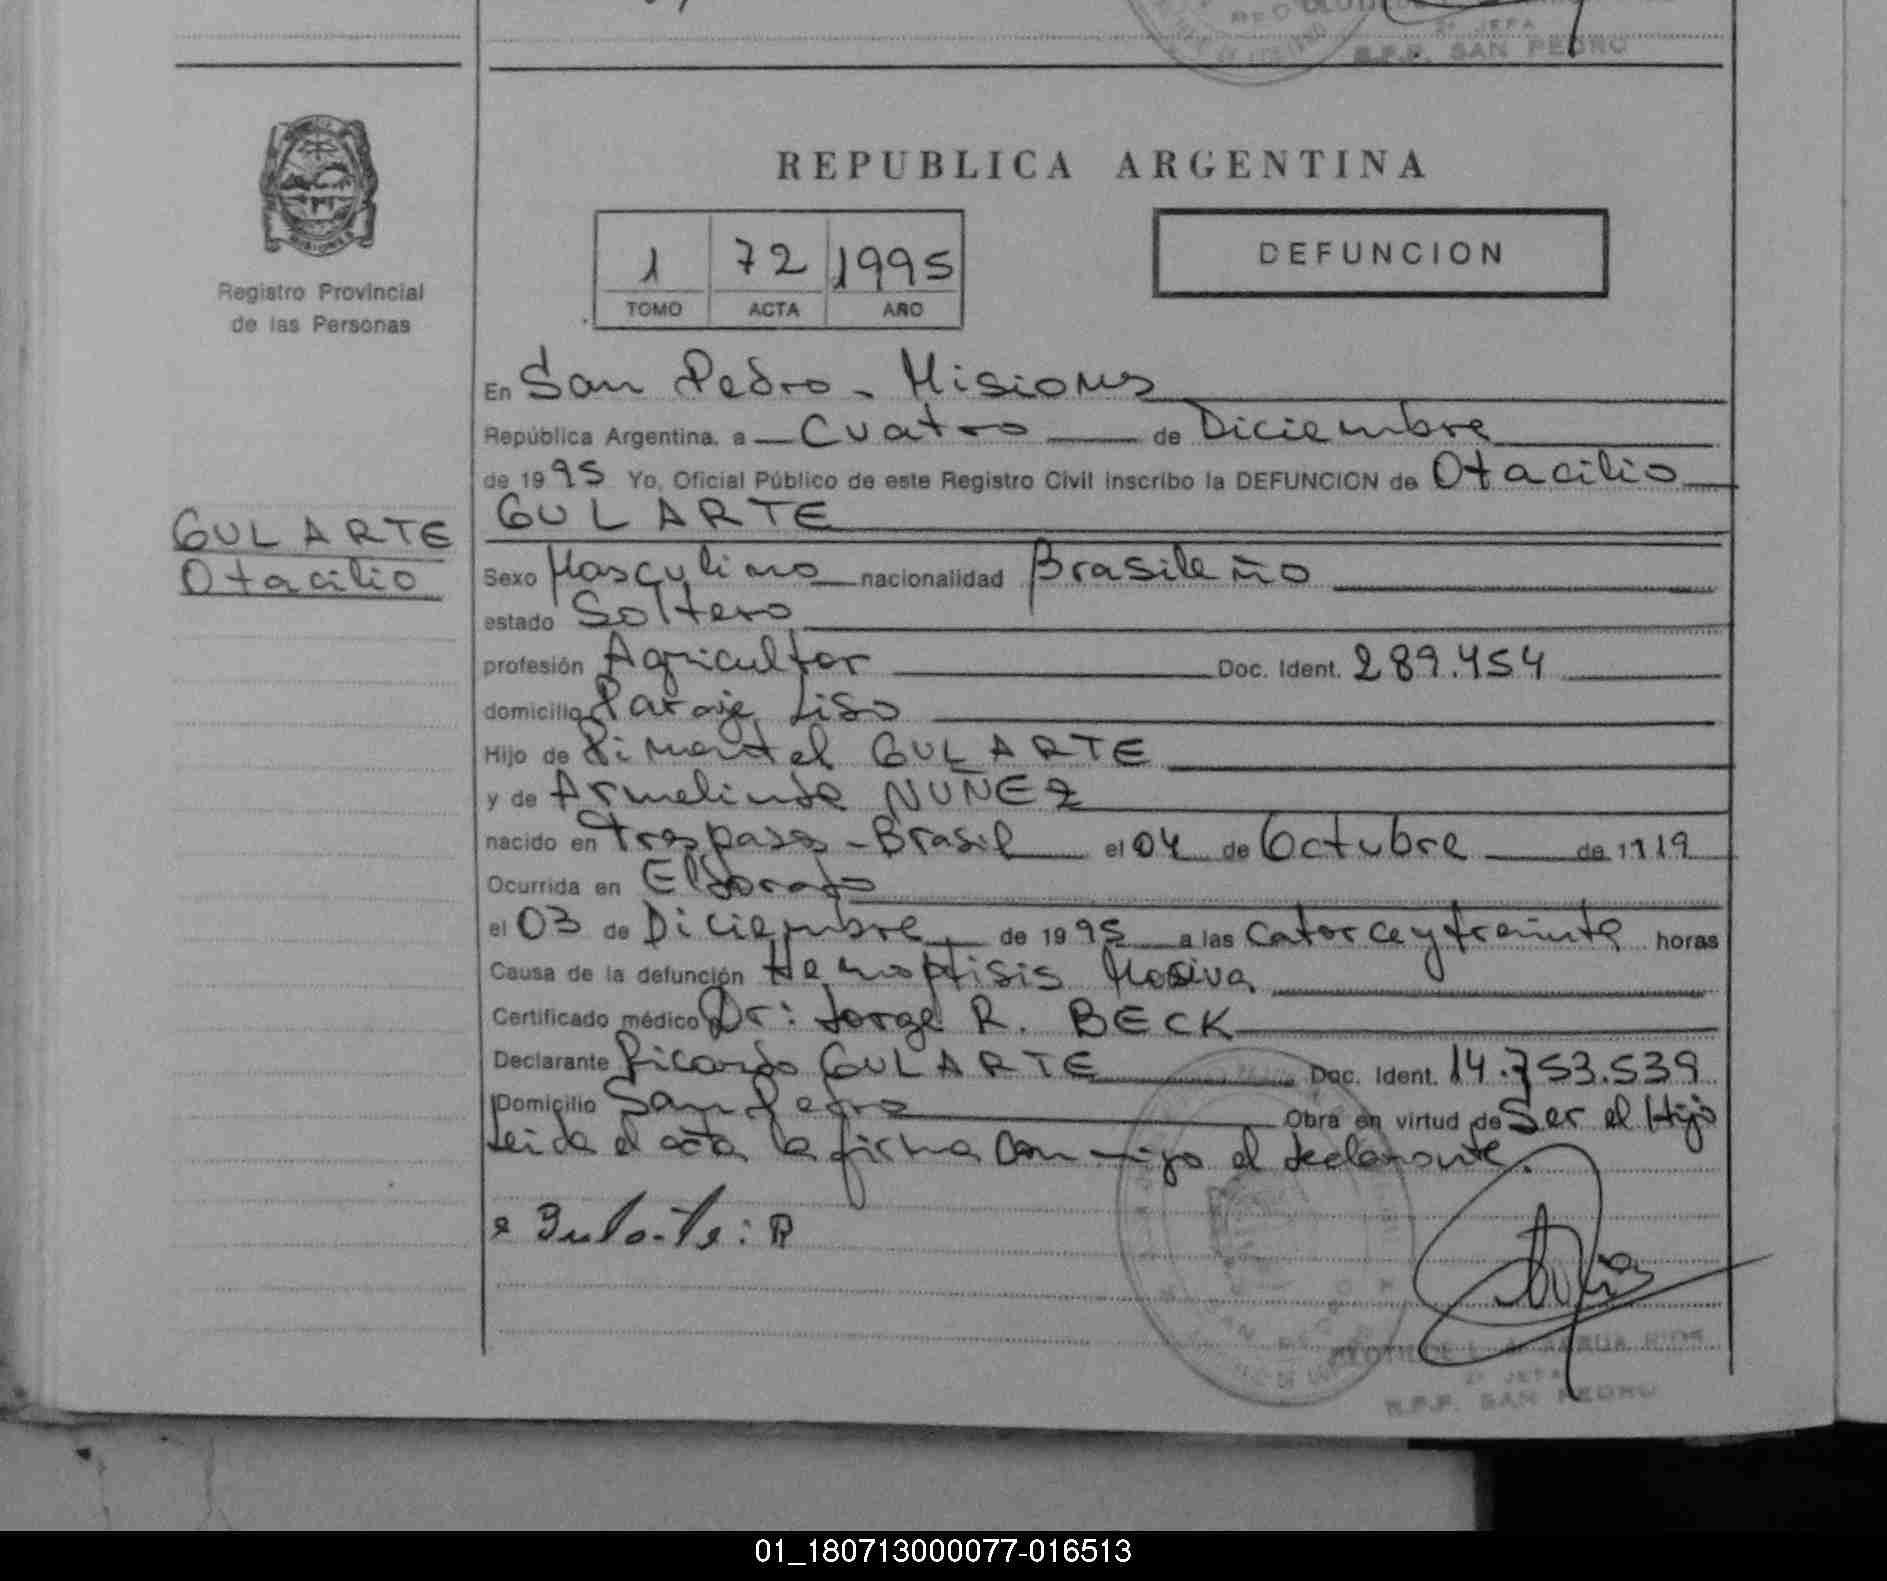 2º JEFA
R.P.P. SAN PEDRO
MISIONES
Registro Provincial
de las Personas
REPUBLICA ARGENTINA
1 72 1995
TOMO ACTA AÑO
DEFUNCION
En San Pedro - Misiones
República Argentina, a Cuatro de Diciembre
de 1995 Yo, Oficial Público de este Registro Civil inscribo la DEFUNCION de Otacilio
GULARTE
GULARTE
Otacilio
Sexo Masculino nacionalidad Brasileño
estado Soltero
profesión Agricultor Doc. Ident. 289.454
domicilio Paraje Liso
Hijo de Pimentel GULARTE
y de Armelinda NUNEZ
nacido en Tres pasos - Brasil el 04 de Octubre de 1919
Ocurrida en Eldorado
el 03 de Diciembre de 1995 a las Catorce y treinta horas
Causa de la defunción Hemoptisis Masiva
Certificado médico Dr: Jorge R. BECK
Declarante Ricardo GULARTE Doc. Ident. 14.753.539
Domicilio San Pedro Obra en virtud de Ser el Hijo
Leida el acta la firma conmigo el declarante.
Gularte: R
2º JEFA
R.P.P. SAN PEDRO
01_180713000077-016513